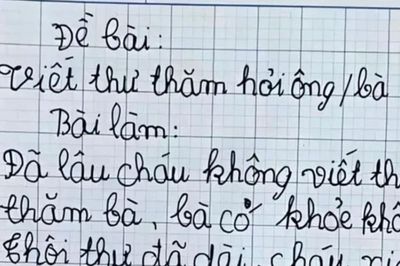 Đề bài:
Viết thư thăm hỏi ông/bà
Bài làm:
Đã lâu cháu không viết th
thăm bà, bà có khỏe khô
Thôi thư đã dài, cháu